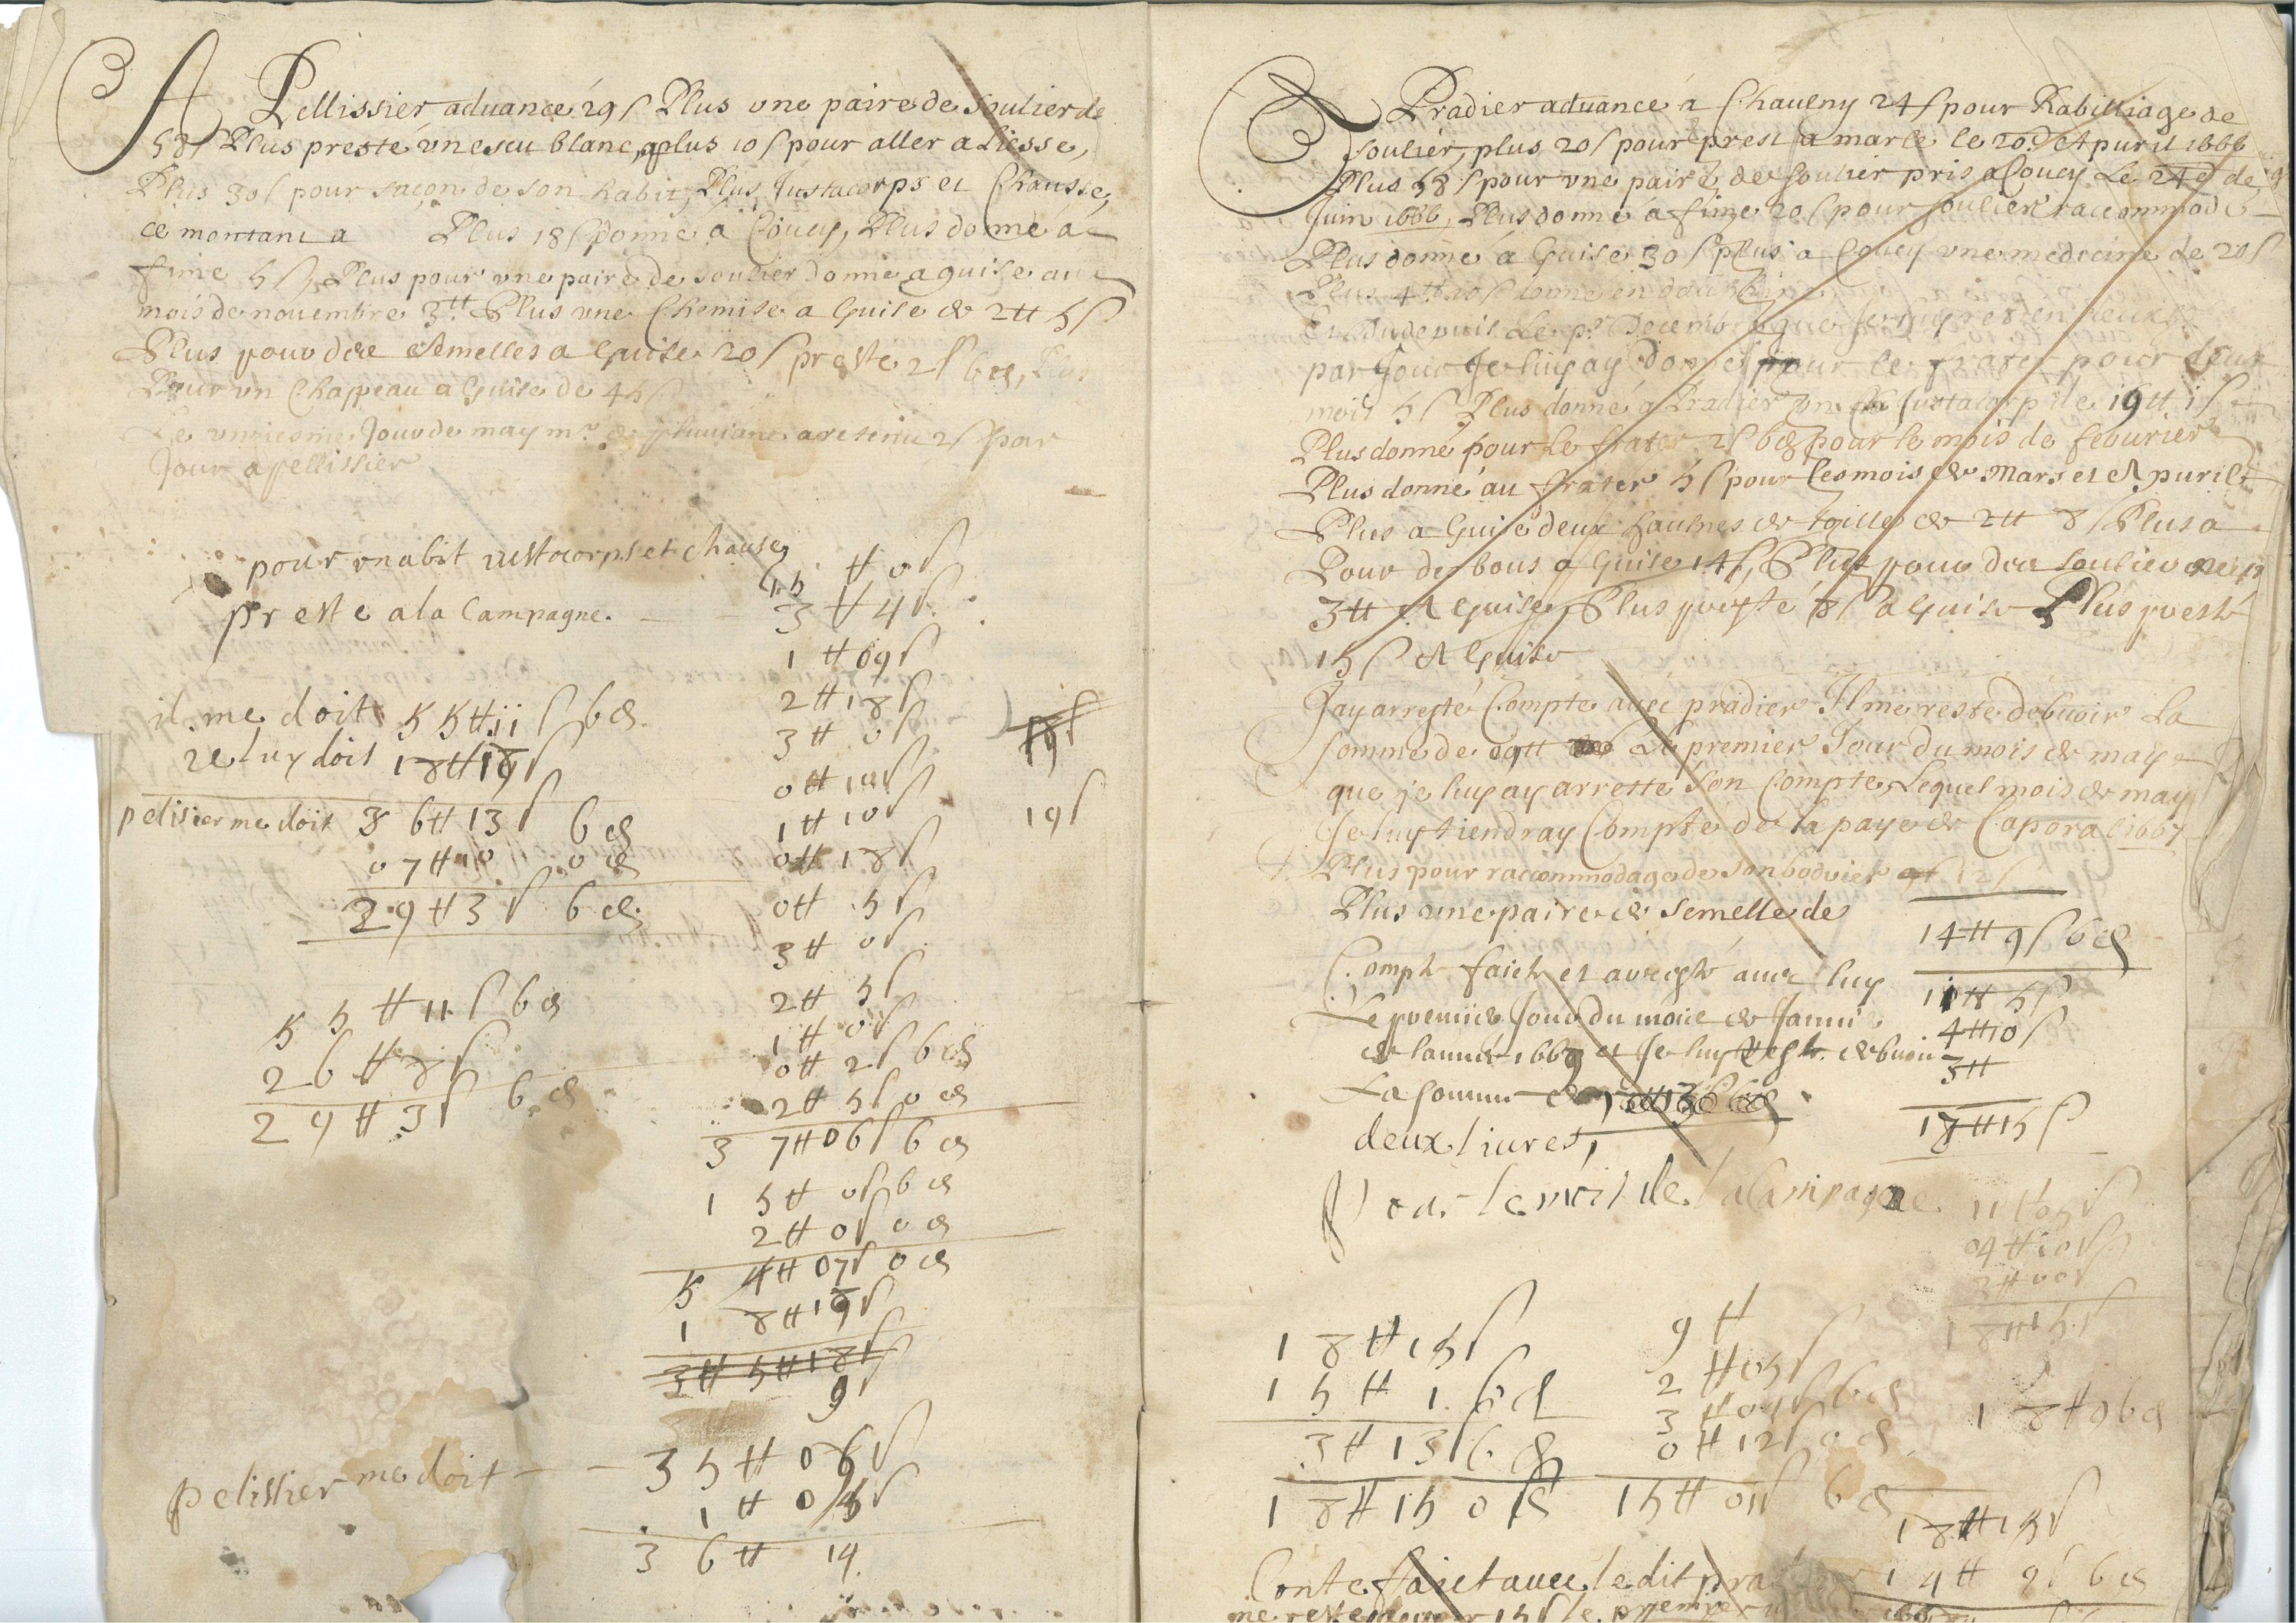 A Pellissier aduance 29 s Plus vne paire de soulier de
58 s Plus presté vn escu blanc, plus 10 s pour aller a Liesse,
Plus 30 s pour façon de son habit, Plus Justacorps et Chausse,
ce montant a Plus 18 s donné à Coucy, Plus donné à
fime 5 s, Plus pour vne paire de soulier donné a guise au
mois de nouembre 3tt Plus vne Chemise a Guise de 2tt 5 s
Plus pour des semelles a Guise 20 s presté 2 s 6 d, Plus
Pour vn Chappeau a Guise de 45 s
Le vnziesme Jour de may mr de a retenu 2 s par
Jour a pellissier
pour vn abit iustocorps et chause
45 tt 0 s
preste a la Campagne. 3 tt 4 s
1 tt 09 s
2 tt 18 s
3 tt 0 s
0 tt 10 s
1 tt 10 s
0 tt 18 s
0 tt 5 s
3 tt 0 s
2 tt 5 s
1 tt 0 s
0 tt 2 s 6 d
2 tt 5 s 0 d
3 7 tt 06 s 6 d
1 5 tt 0 s 6 d
2 tt 0 s 0 d
5 4 tt 07 s 0 d
1 8 tt 19 s
3 tt 5 tt 18 s
9 s
19 s
il me doit 5 5 tt 11 s 6 d
ie luy doit 18 tt 18 s
pelisier me doit 3 6 tt 13 s 6 d
0 7 tt 10 0 d
2 9 tt 3 s 6 d
5 5 tt 11 s 6 d
2 6 tt 8 s
2 9 tt 3 s 6 d
pelissier me doit 3 5 tt 08 s
1 tt 0 5 s
3 6 tt 14
A Pradier aduancé à Chauny 24 s pour Rabilliage de
soulier, plus 20 s pour prest a marle le 20e Apuril 1666
Plus 58 s pour vne paire de soulier pris a Coucy Le 24e de
Juin 1666, Plus donné a fime 20 s pour soulier raccommodé
Plus donné a Guise 30 s plus a Coucy vne medecine de 20 s
Plus 4tt 10 s donné en
depuis Le pr Decembre que
par Jour Je luy ay donné pour le frater pour deux
mois 5 s Plus donné a Pradier vn Justacorp de 19tt 1 s
Plus donné pour Le frater 2 s 6 d pour le mois de feburier
Plus donné au frater 5 s pour les mois de Mars et Apuril
Plus a Guise deux haulnes de toille de 2tt 8 s Plus a
Pour de bous a Guise 14 s, Plus pour des soulier
3tt A Guise, Plus presté 8 s a Guise Plus presté
15 s A Guise
Jay arresté Compte auec pradier Il me reste debuoir La
somme de 09tt Le premier Jour du mois de may
que je luy ay arresté son Compte, Lequel mois de may
Je luy tiendray Compte de la paye de Caporal 1667
Plus pour raccommodage de son bodrier
Plus vne paire de semelle de
14tt 9 s 6 d
Compte faict et arresté auec luy
11tt 5 s
Le premier Jour du mois de Janui
4tt 10 s
de lannée 1668 et Je luy reste debuoir
3tt
La somme de
deux liures,
18tt 15 s
Pour le mois de la Campagne
11tt 05 s
04tt 10 s
3tt 00 s
18tt 15 s
1 8 tt 15 s
1 5 tt 1. 6 d
3 tt 13 s 6 d
1 8 tt 15 0 d
9 tt
2 tt 05 s
3 tt 04 s 6 d
0 tt 12 s 0 d
15 tt 01 s 6 d
1 8 tt 0 6 d
18 tt 15 s
14 tt 9 s 6 d
Conte faict auec le dit
me reste deuoir 15 s le premier